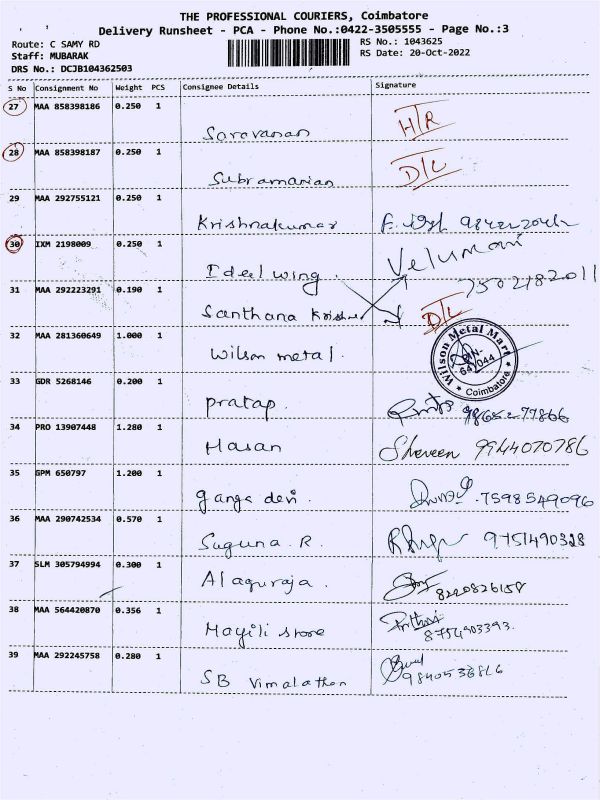 THE PROFESSIONAL COURIERS, Coimbatore
Delivery Runsheet - PCA - Phone No.:0422-3505555 - Page No.:3
Route: C SAMY RD
Staff: MUBARAK
DRS No.: DCJB104362503
RS No.: 1043625
RS Date: 20-Oct-2022
S No Consignment No Weight PCS Consignee Details Signature
27 MAA 858398186 0.250 1
Saravanan H/R
28 MAA 858398187 0.250 1
Subramanian D/L
29 MAA 292755121 0.250 1
Krishnakumar
30 IXM 2198009 0.250 1
Ideal wing. Velumani
7502182011
31 MAA 292223291 0.190 1
Santhana Krishna D/L
32 MAA 281360649 1.000 1
Wilson metal. Wilson Metal Mart Coimbatore
33 GDR 5268146 0.200 1
Pratap.
34 PRO 13907448 1.280 1
Hasan Shereen 9944070786
35 GPM 650797 1.200 1
Ganga devi. 7598549096
36 MAA 290742534 0.570 1
Suguna. R. 9751490328
37 SLM 305794994 0.300 1
Alaguraja. 8220826158
38 MAA 564420870 0.356 1
Mayili store
8754903393.
39 MAA 292245758 0.280 1
SB Vimalathan 9840536816